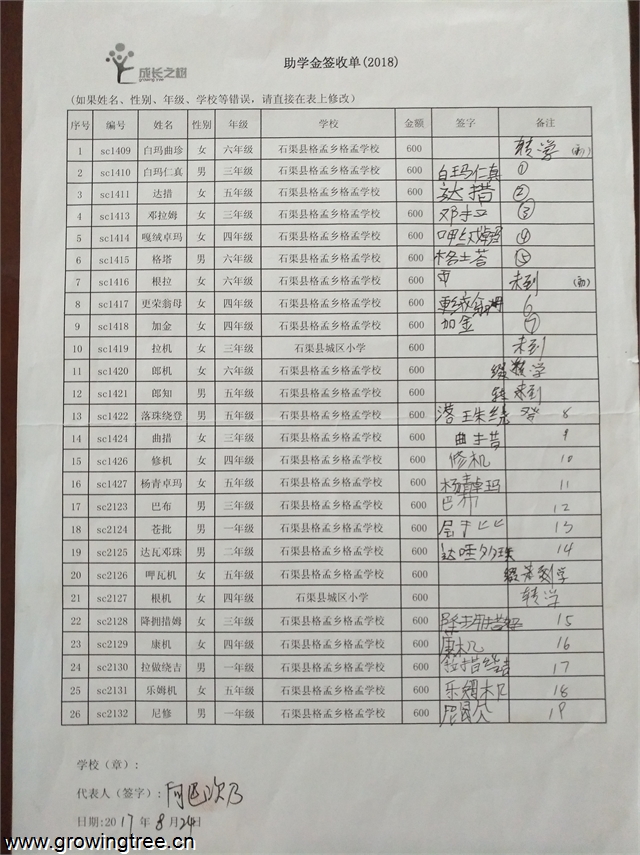 成长之树
助学金签收单(2018)
(如果姓名、性别、年级、学校等错误，请直接在表上修改)
序号 编号 姓名 性别 年级 学校 金额 签字 备注
1 sc1409 白玛曲珍 女 六年级 石渠县格孟乡格孟学校 600 转学
2 sc1410 白玛仁真 男 三年级 石渠县格孟乡格孟学校 600 白玛仁真 ①
3 sc1411 达措 女 五年级 石渠县格孟乡格孟学校 600 达措 ②
4 sc1413 邓拉姆 女 三年级 石渠县格孟乡格孟学校 600 ③
5 sc1414 嘎绒卓玛 女 四年级 石渠县格孟乡格孟学校 600 ④
6 sc1415 格塔 男 六年级 石渠县格孟乡格孟学校 600 ⑤
7 sc1416 根拉 女 六年级 石渠县格孟乡格孟学校 600 未到
8 sc1417 更荣翁母 女 四年级 石渠县格孟乡格孟学校 600 6
9 sc1418 加金 女 四年级 石渠县格孟乡格孟学校 600 加金 ⑦
10 sc1419 拉机 女 三年级 石渠县城区小学 600 未到
11 sc1420 郎机 女 六年级 石渠县格孟乡格孟学校 600 学
12 sc1421 郎知 男 五年级 石渠县格孟乡格孟学校 600 未到
13 sc1422 落珠绕登 男 五年级 石渠县格孟乡格孟学校 600 8
14 sc1424 曲措 女 三年级 石渠县格孟乡格孟学校 600 曲 9
15 sc1426 修机 女 四年级 石渠县格孟乡格孟学校 600 修机 10
16 sc1427 杨青卓玛 女 五年级 石渠县格孟乡格孟学校 600 杨青卓玛 11
17 sc2123 巴布 男 三年级 石渠县格孟乡格孟学校 600 巴布 12
18 sc2124 苍批 男 一年级 石渠县格孟乡格孟学校 600 13
19 sc2125 达瓦邓珠 男 二年级 石渠县格孟乡格孟学校 600 14
20 sc2126 呷瓦机 女 五年级 石渠县格孟乡格孟学校 600
21 sc2127 根机 女 四年级 石渠县城区小学 600 转学
22 sc2128 降拥措姆 女 三年级 石渠县格孟乡格孟学校 600 15
23 sc2129 康机 女 四年级 石渠县格孟乡格孟学校 600 康机 16
24 sc2130 拉做绕吉 男 一年级 石渠县格孟乡格孟学校 600 17
25 sc2131 乐姆机 女 五年级 石渠县格孟乡格孟学校 600 乐姆机 18
26 sc2132 尼修 男 一年级 石渠县格孟乡格孟学校 600 19
学校（章）:
代表人（签字）:
日期:2017年8月24日
www.growingtree.cn